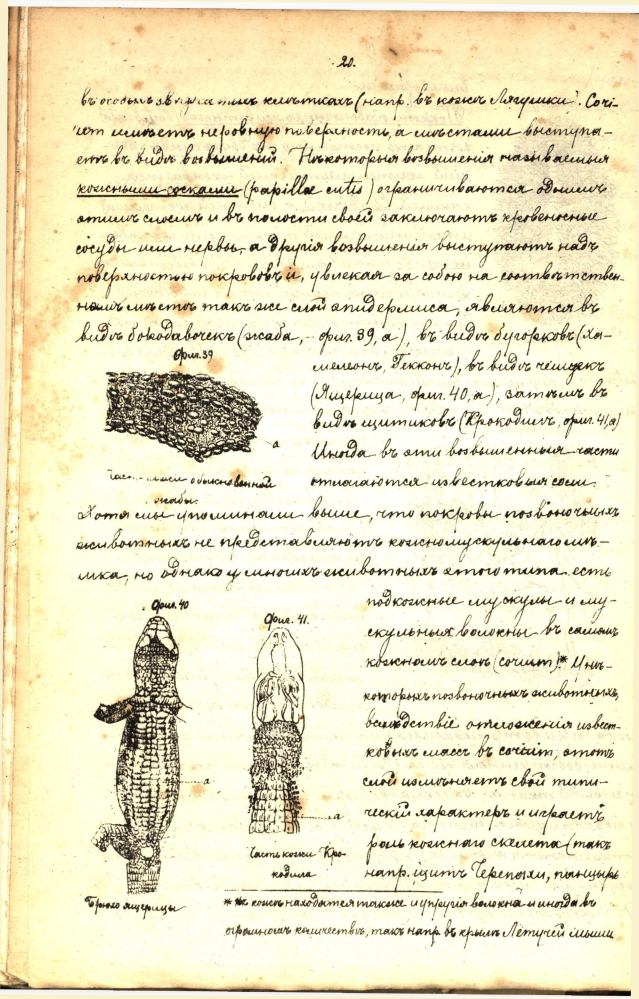 20.
въ особыхъ клѣткахъ (напр. въ кожѣ Лягушки). Cori-
um имѣетъ неровную поверхность, а мѣстами выступа-
етъ въ видѣ возвышеній. Нѣкоторыя возвышенія называемыя
кожными сосками (papillæ cutis) ограничиваются однимъ
этимъ слоемъ и въ полости своей заключаютъ кровеносные
сосуды или нервы, а другія возвышенія выступаютъ надъ
поверхностью покрововъ и, увлекая за собою на соотвѣтствен-
номъ мѣстѣ такъ же слой эпидермиса, являются въ
видѣ бородавочекъ (жаба, фиг. 39, а), въ видѣ бугорковъ (Ха-
мелеонъ, Гекконъ), въ видѣ чешуекъ
(Ящерица, фиг. 40, а), затѣмъ въ
видѣ щитиковъ (Крокодилъ, фиг. 41, а)
Иногда въ эти возвышенныя части
отлагаются известковыя соли.
Фиг. 39
а
обыкновенной
жабы.
Хотя мы упоминали выше, что покровы позвоночныхъ
животныхъ не представляютъ кожномускульнаго мѣ-
шка, но однако у многихъ животныхъ этого типа есть
подкожные мускулы и му-
скульныя волокны въ самомъ
кожномъ слоѣ (corium)* У нѣ-
которыхъ позвоночныхъ животныхъ,
вслѣдствіе отложенія извест-
ковыхъ массъ въ corium, этотъ
слой измѣняетъ свой типи-
ческій характеръ и играетъ
роль кожнаго скелета (такъ
напр. щитъ Черепахи, панцырь
Фиг. 40
а
Брюхо ящерицы
Фиг. 41.
а
Часть кожи Кро-
кодила
* Въ кожѣ находятся также и упругія волокна и иногда въ
огромномъ количествѣ, такъ напр. въ крылѣ Летучей мыши